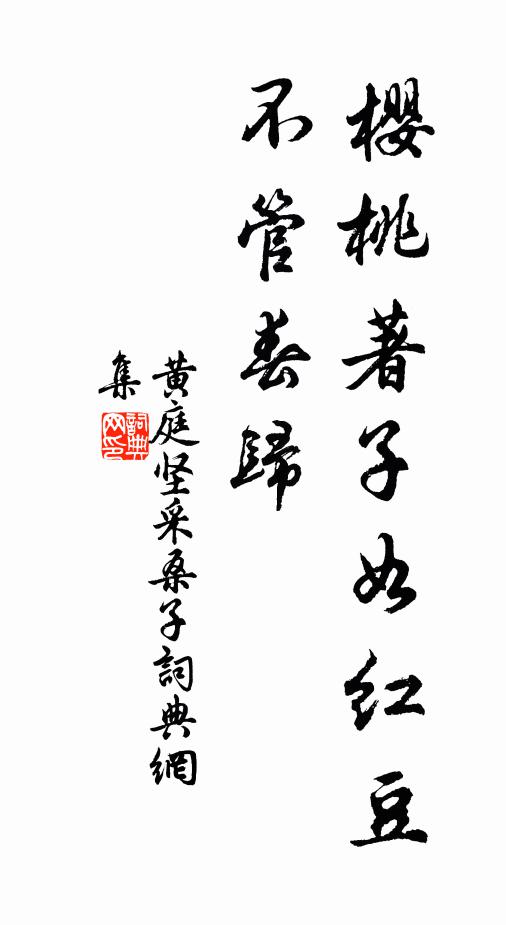 櫻桃著子如红豆
不管春歸
黄庭坚采桑子詞典網
集
詞典网印